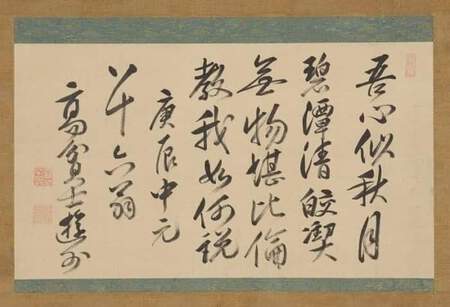 吾心似秋月
碧潭清皎潔
無物堪比倫
教我如何說
庚辰中元
八十六翁
高貧士遊外